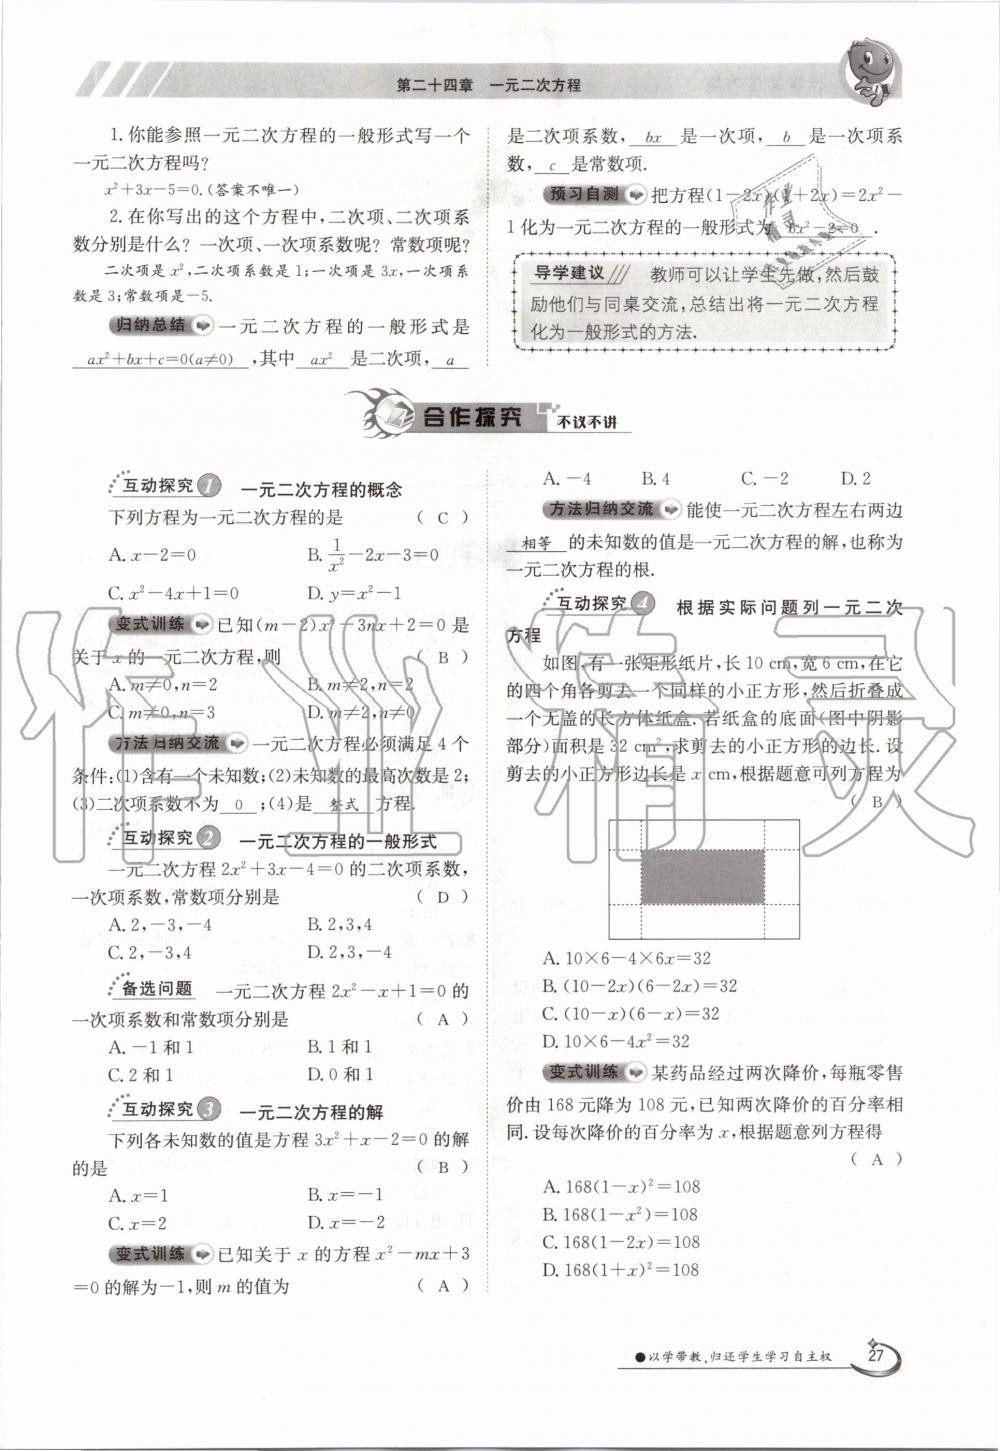 第二十四章 一元二次方程
1.你能参照一元二次方程的一般形式写一个
一元二次方程吗?
x²+3x-5=0.(答案不唯一)
2.在你写出的这个方程中,二次项、二次项系
数分别是什么? 一次项、一次项系数呢? 常数项呢?
二次项是x²,二次项系数是1;一次项是3x,一次项系
数是3;常数项是-5.
归纳总结 一元二次方程的一般形式是
ax²+bx+c=0(a≠0),其中 ax² 是二次项, a
是二次项系数, bx 是一次项, b 是一次项系
数, c 是常数项.
预习自测 把方程(1-2x)(1+2x)=2x²-
1化为一元二次方程的一般形式为 6x²-2=0 .
导学建议 教师可以让学生先做,然后鼓
励他们与同桌交流,总结出将一元二次方程
化为一般形式的方法.
合作探究 不议不讲
互动探究1 一元二次方程的概念
下列方程为一元二次方程的是 ( C )
A. x-2=0 B. 1/x²-2x-3=0
C. x²-4x+1=0 D. y=x²-1
变式训练 已知(m-2)x²-3nx+2=0是
关于x的一元二次方程,则 ( B )
A. m≠0,n=2 B. m≠2,n=2
C. m≠0,n=3 D. m≠2,n≠0
方法归纳交流 一元二次方程必须满足4个
条件:(1)含有一个未知数;(2)未知数的最高次数是2;
(3)二次项系数不为 0 ;(4)是 整式 方程.
互动探究2 一元二次方程的一般形式
一元二次方程2x²+3x-4=0的二次项系数,
一次项系数,常数项分别是 ( D )
A. 2,-3,-4 B. 2,3,4
C. 2,-3,4 D. 2,3,-4
备选问题 一元二次方程2x²-x+1=0的
一次项系数和常数项分别是 ( A )
A. -1和1 B. 1和1
C. 2和1 D. 0和1
互动探究3 一元二次方程的解
下列各未知数的值是方程3x²+x-2=0的解
的是 ( B )
A. x=1 B. x=-1
C. x=2 D. x=-2
变式训练 已知关于x的方程x²-mx+3
=0的解为-1,则m的值为 ( A )
A. -4 B. 4 C. -2 D. 2
方法归纳交流 能使一元二次方程左右两边
相等 的未知数的值是一元二次方程的解,也称为
一元二次方程的根.
互动探究4 根据实际问题列一元二次
方程
如图,有一张矩形纸片,长10 cm,宽6 cm,在它
的四个角各剪去一个同样的小正方形,然后折叠成
一个无盖的长方体纸盒.若纸盒的底面(图中阴影
部分)面积是32 cm²,求剪去的小正方形的边长.设
剪去的小正方形边长是x cm,根据题意可列方程为
( B )
A. 10×6-4×6x=32
B. (10-2x)(6-2x)=32
C. (10-x)(6-x)=32
D. 10×6-4x²=32
变式训练 某药品经过两次降价,每瓶零售
价由168元降为108元,已知两次降价的百分率相
同.设每次降价的百分率为x,根据题意列方程得
( A )
A. 168(1-x)²=108
B. 168(1-x²)=108
C. 168(1-2x)=108
D. 168(1+x)²=108
●以学带教,归还学生学习自主权
27
作业精灵